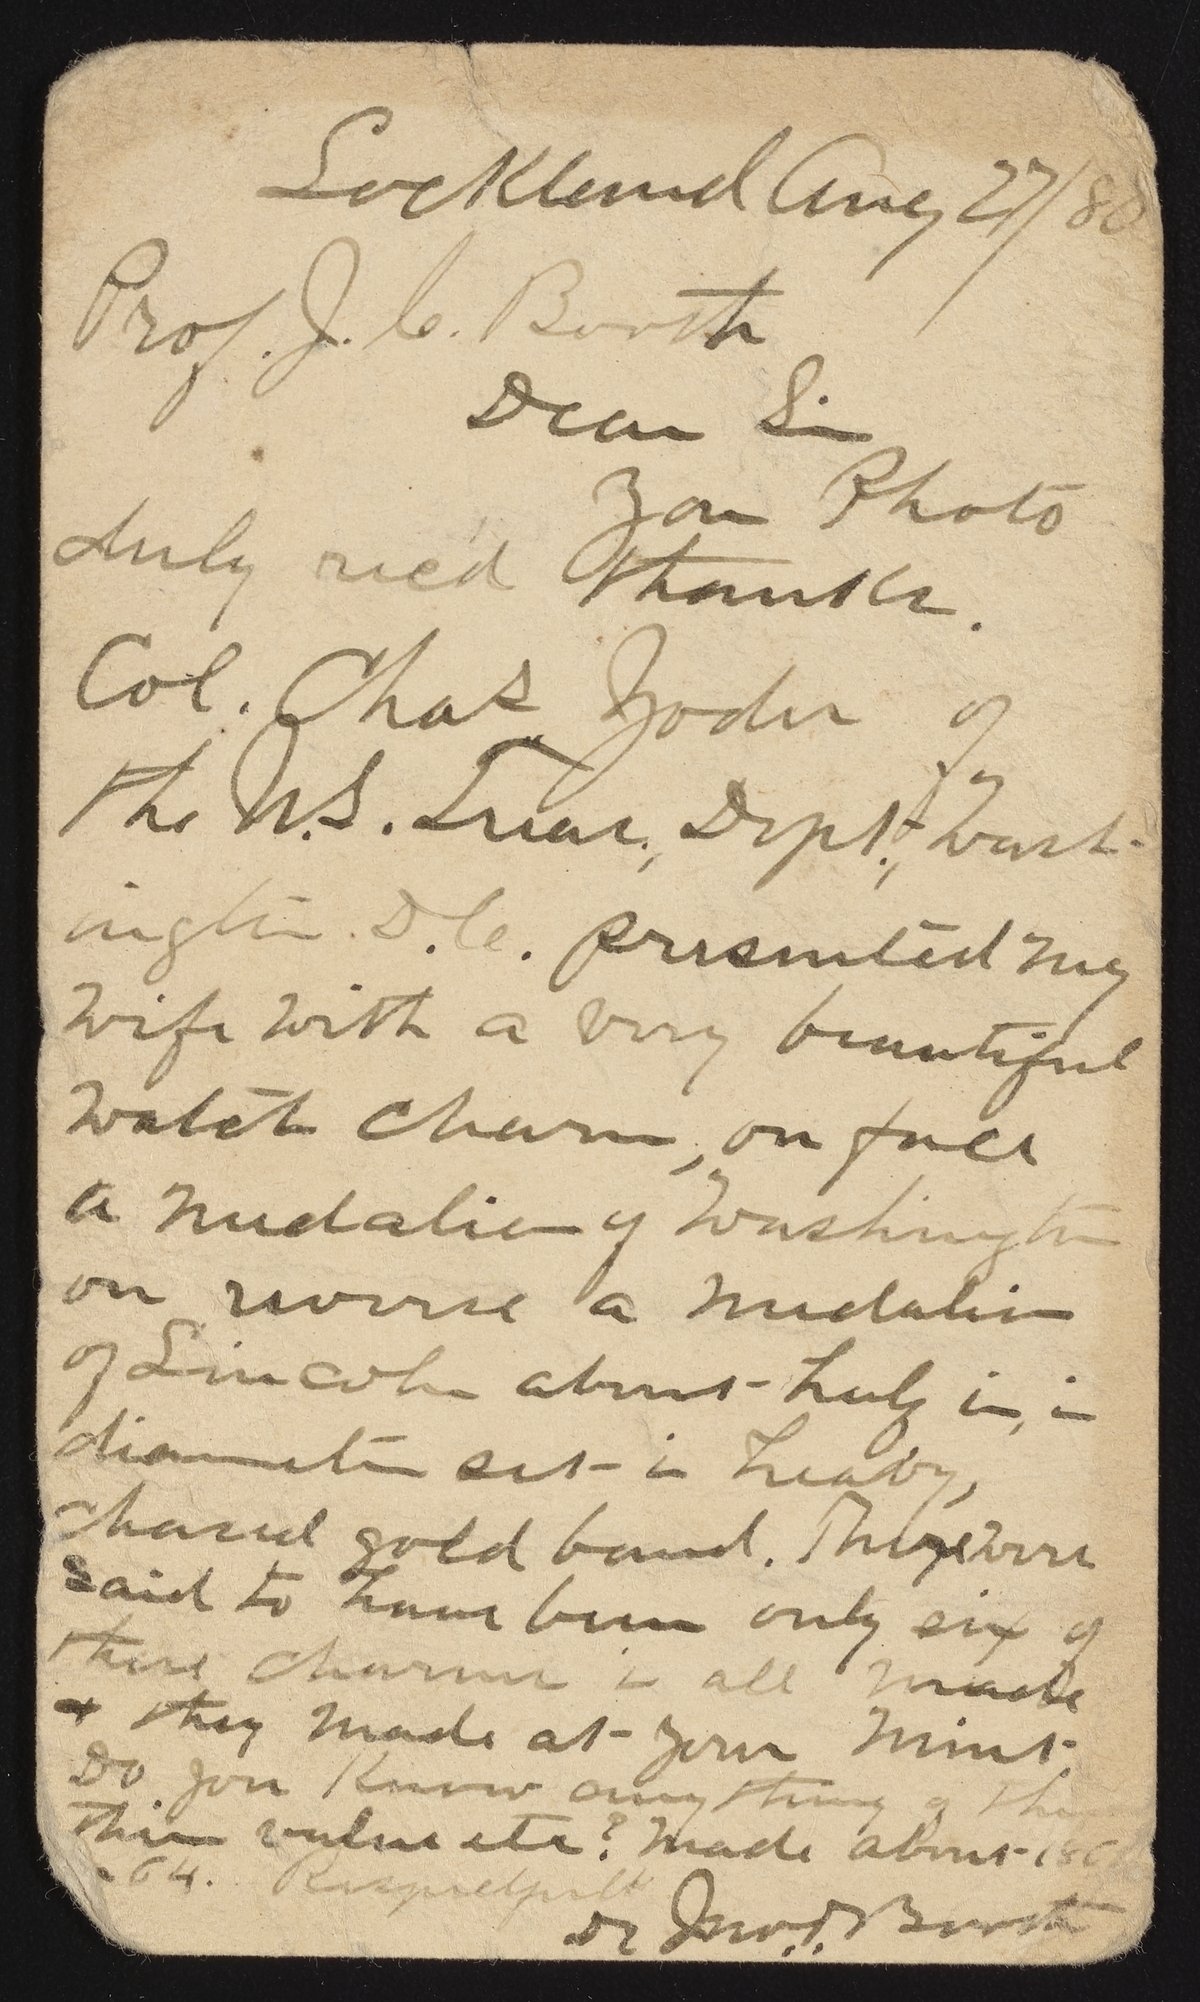 Lockland Aug 27/80
Prof. J. C. Booth
Dear Sir
Your Photo
duly rec'd Thanks.
Col. Chas Yoder of
the U.S. Treas., Dept., Wash-
ington D.C. presented my
wife with a very beautiful
watch charm, on face
a medalion of Washington
on reverse a medalion
of Lincoln about half in, in
diameter set in heavy,
chased gold band. There were
said to have been only six of
these charms in all made
& they made at your mint
Do you know anything of them
their value etc? Made about
64. Respectfully
Dr Jno. P. Booth